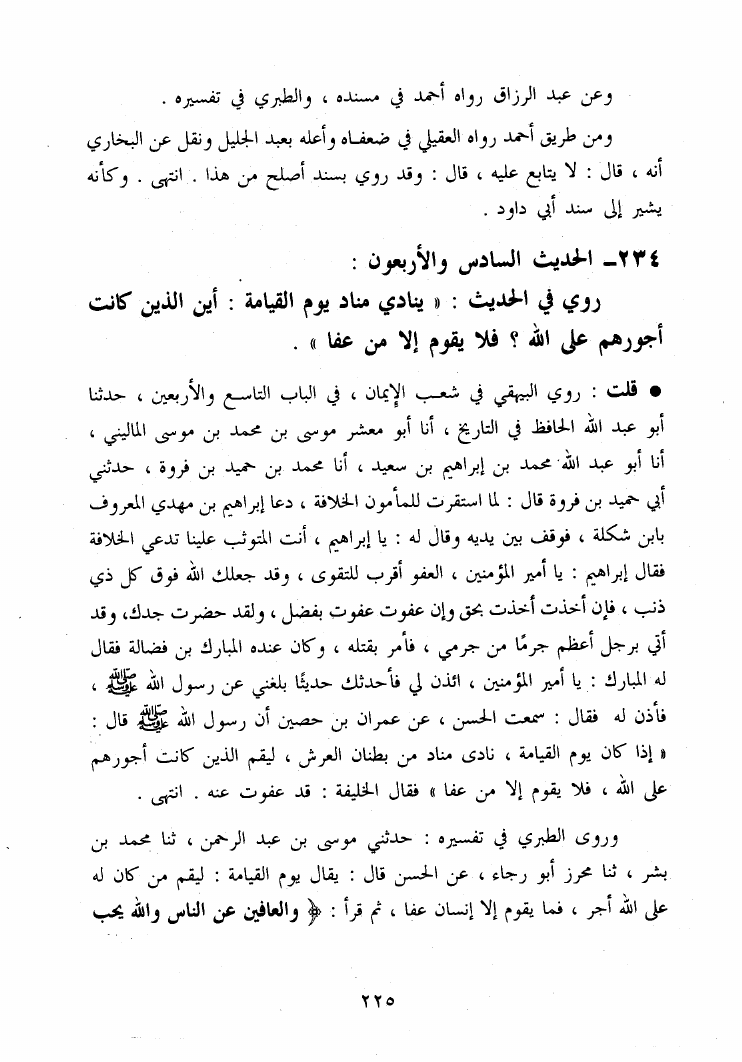 وعن عبد الرزاق رواه أحمد في مسنده ، والطبري في تفسيره .
ومن طريق أحمد رواه العقيلي في ضعفاه وأعله بعبد الجليل ونقل عن البخاري
أنه ، قال : لا يتابع عليه ، قال : وقد روي بسند أصلح من هذا . انتهى . وكأنه
يشير إلى سند أبي داود .
٢٣٤ـ الحديث السادس والأربعون :
روي في الحديث : « ينادي مناد يوم القيامة : أين الذين كانت
أجورهم على الله ؟ فلا يقوم إلا من عفا » .
● قلت : روي البيهقي في شعب الإيمان ، في الباب التاسع والأربعين ، حدثنا
أبو عبد الله الحافظ في التاريخ ، أنا أبو معشر موسى بن محمد بن موسى الماليني ،
أنا أبو عبد الله محمد بن إبراهيم بن سعيد ، أنا محمد بن حميد بن فروة ، حدثني
أبي حميد بن فروة قال : لما استقرت للمأمون الخلافة ، دعا إبراهيم بن مهدي المعروف
بابن شكلة ، فوقف بين يديه وقال له : يا إبراهيم ، أنت المتوثب علينا تدعي الخلافة
فقال إبراهيم : يا أمير المؤمنين ، العفو أقرب للتقوى ، وقد جعلك الله فوق كل ذي
ذنب ، فإن أخذت أخذت بحق وإن عفوت عفوت بفضل ، ولقد حضرت جدك، وقد
أتي برجل أعظم جرمًا من جرمي ، فأمر بقتله ، وكان عنده المبارك بن فضالة فقال
له المبارك : يا أمير المؤمنين ، ائذن لي فأحدثك حديثًا بلغني عن رسول الله ﷺ ،
فأذن له فقال : سمعت الحسن ، عن عمران بن حصين أن رسول الله ﷺ قال :
« إذا كان يوم القيامة ، نادى مناد من بطنان العرش ، ليقم الذين كانت أجورهم
على الله ، فلا يقوم إلا من عفا » فقال الخليفة : قد عفوت عنه . انتهى .
وروى الطبري في تفسيره : حدثني موسى بن عبد الرحمن ، ثنا محمد بن
بشر ، ثنا محرز أبو رجاء ، عن الحسن قال : يقال يوم القيامة : ليقم من كان له
على الله أجر ، فما يقوم إلا إنسان عفا ، ثم قرأ : ﴿ والعافين عن الناس والله يحب
٢٢٥